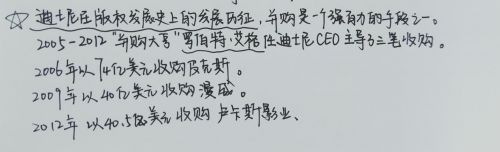 ☆ 迪士尼在版权发展史上的发展历征，并购是一个强有力的手段之一。
2005-2012 "并购大亨"罗伯特·艾格任迪士尼CEO主导了三笔收购。
2006年以74亿美元收购皮克斯。
2009年以40亿美元收购漫威。
2012年 以40.5亿美元收购 卢卡斯影业、